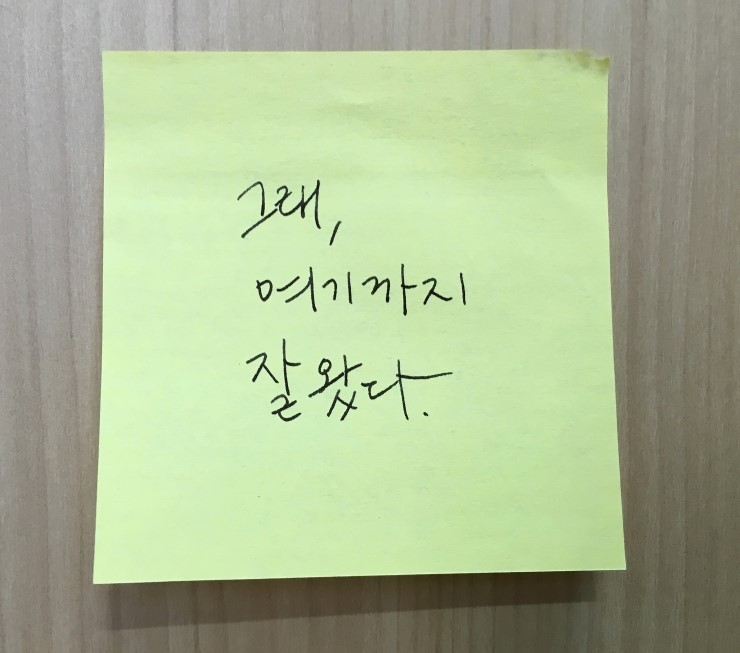 그래,
여기까지
잘 왔다.